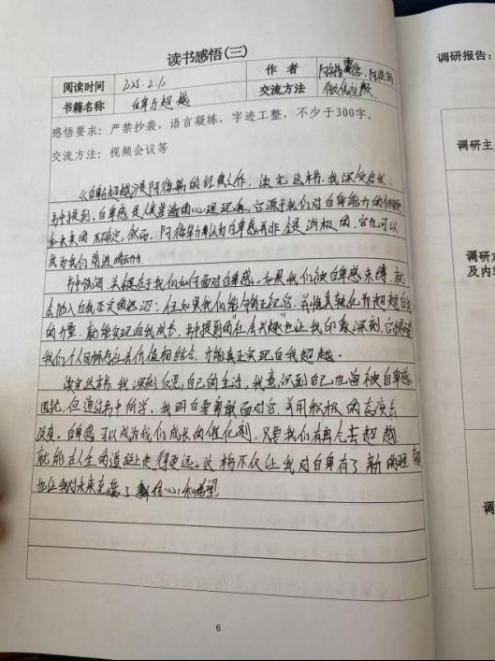 读书感悟(三)
阅读时间 2025.2.10 作者 阿德
书籍名称 自卑与超越 交流方法
感悟要求：严禁抄袭，语言凝练，字迹工整，不少于300字。
交流方法：视频会议等
《自卑与超越》是阿德勒的经典之作，读完这本书，我深受启发
书中提到，自卑感是人类普遍的心理现象，它源于我们对自身能力的
和未来的不确定，然而，阿德勒认为自卑感并非是消极的，它也可以
成为我们前进的动力
书中强调，关键在于我们如何面对自卑感，如果我们被自卑感束缚，就
会陷入自我否定的；但如果我们能正视它，并将其转化为超越自
的力量，就能实现自我成长，书中提到的"社会兴趣"也让我印象深刻，它
我们个人目标与社会价值相结合，才能真正实现自我超越。
读完这本书，我深刻反思自己的生活，我意识到自己也曾被自卑感
困扰，但通过书中所学，我明白要勇敢面对它，并用积极的态度去
改变。自卑感可以成为我们成长的催化剂，只要我们有勇气去超越
就能在人生的道路上走得更远。这本书不仅让我对自卑有了新的理解
也让我对未来充满了新信心和希望
6
调研报告：
调研主
调研对
及内
调